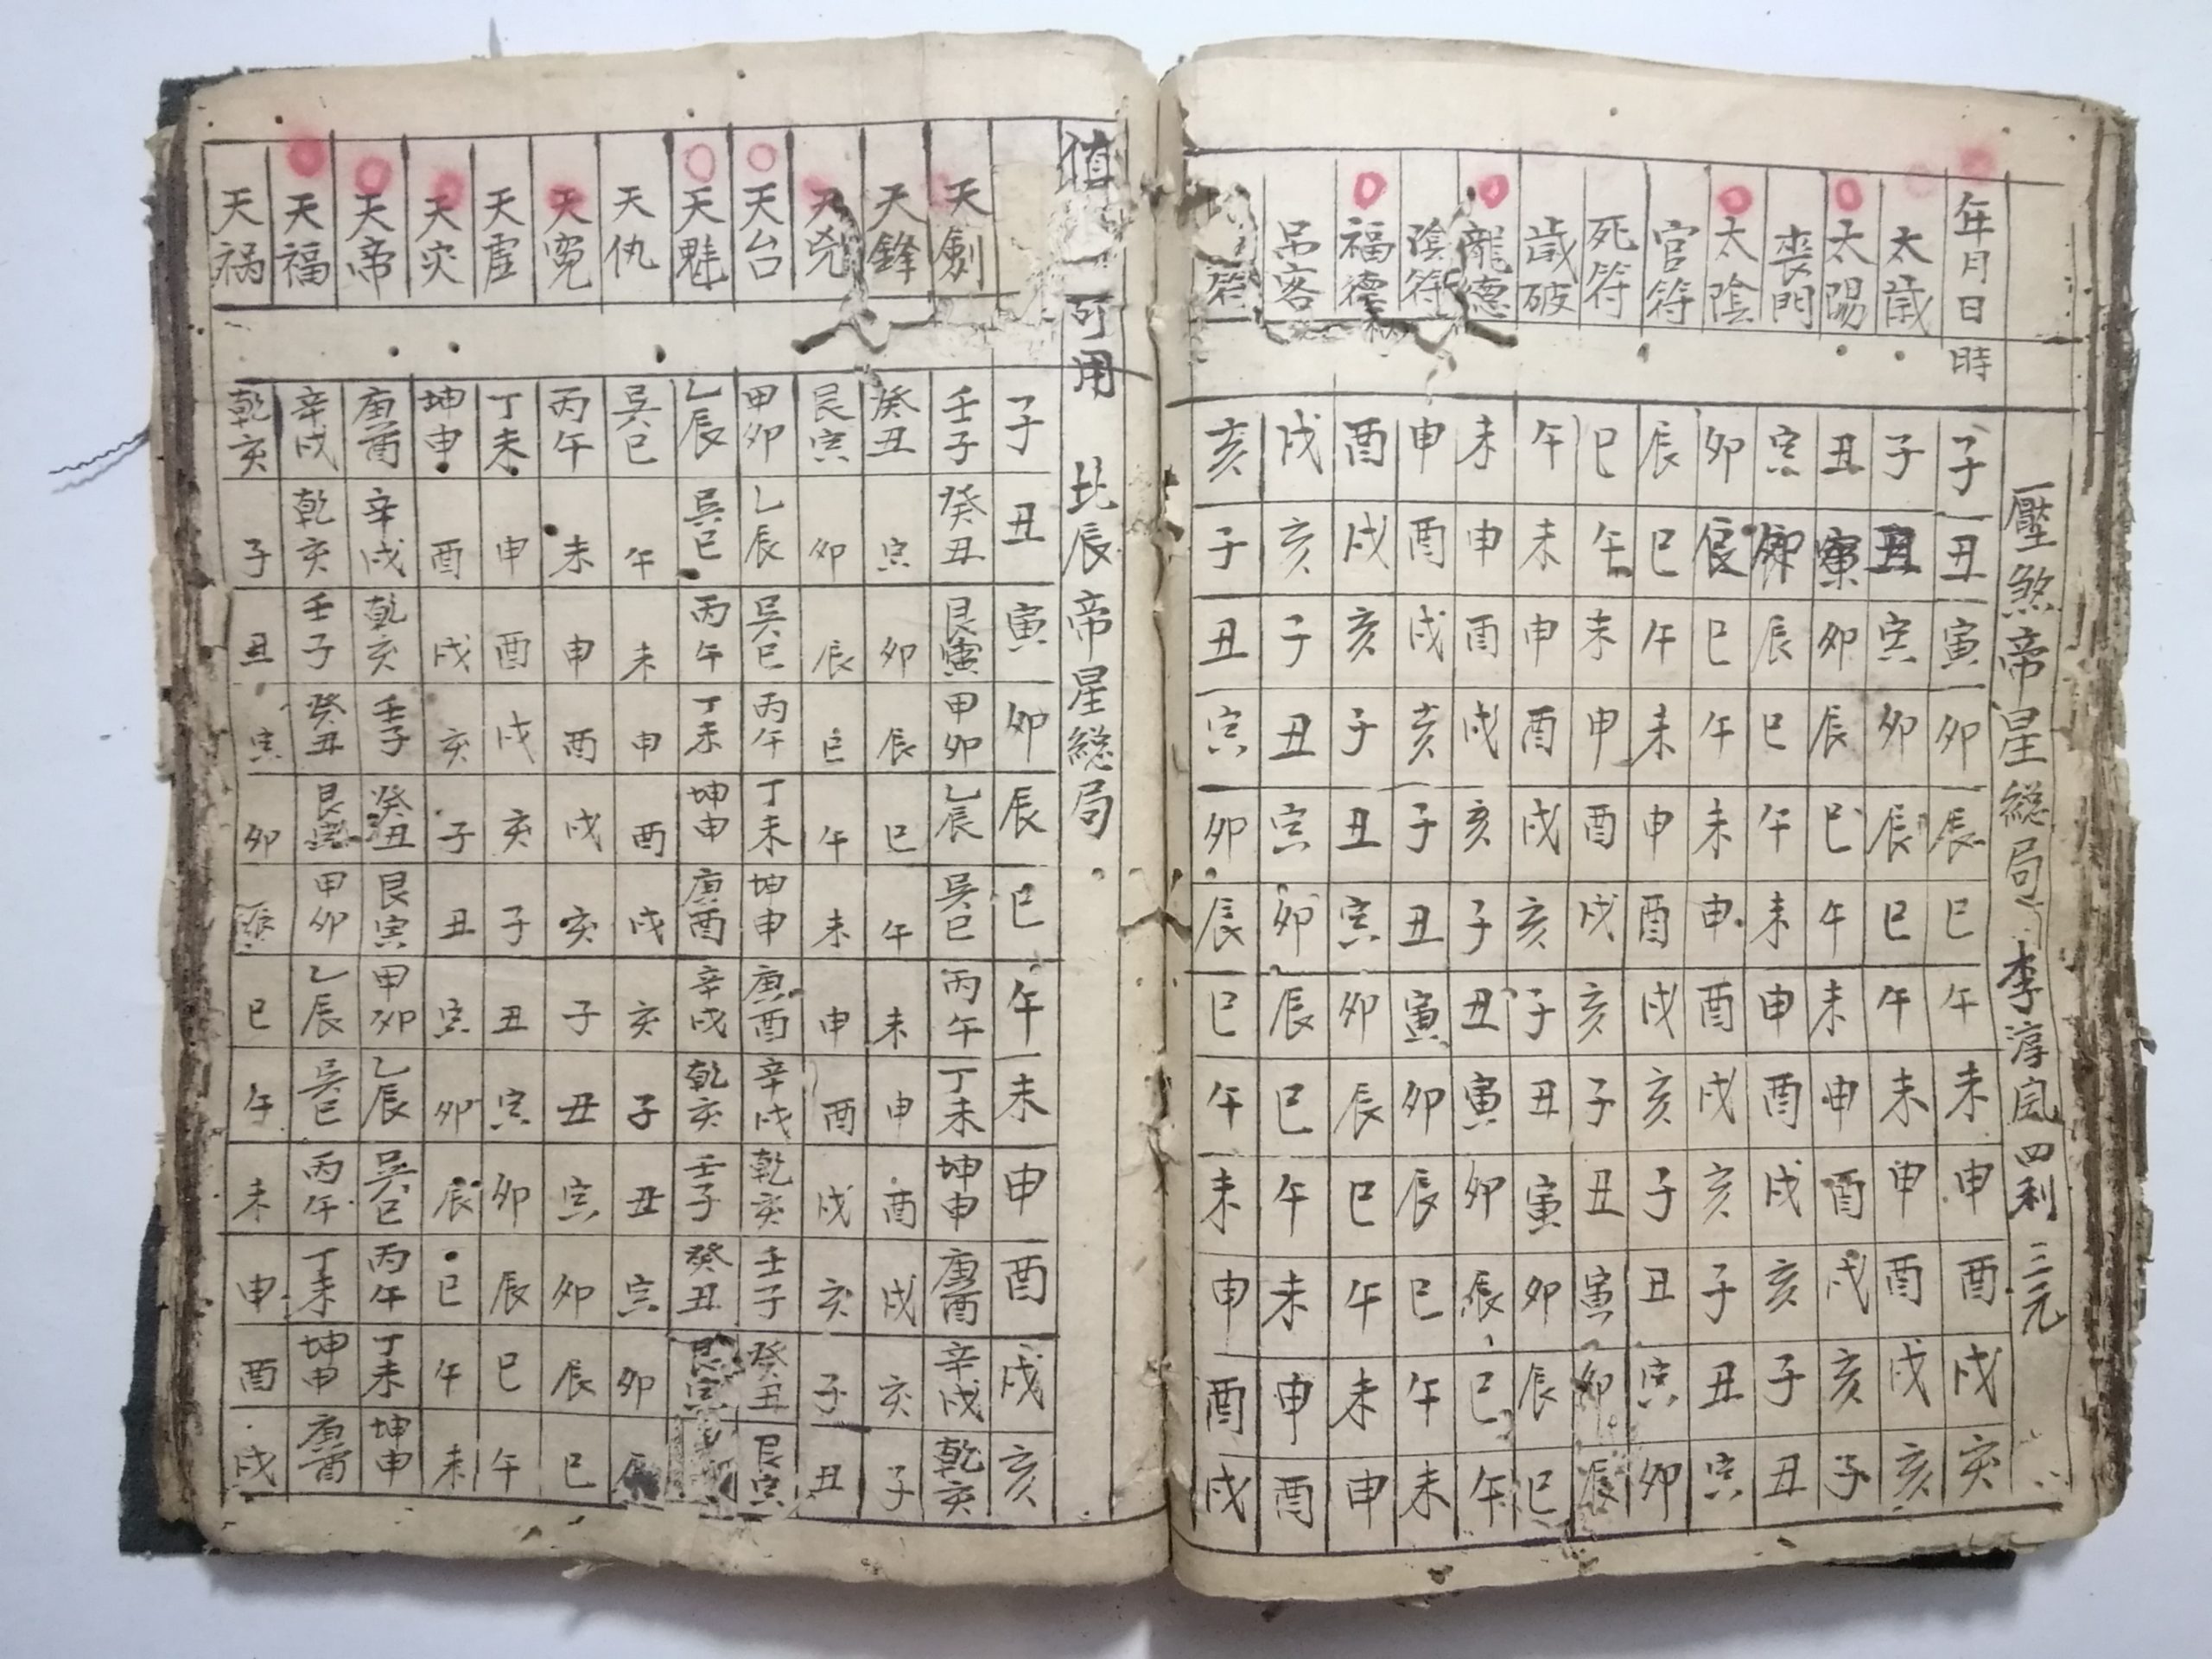 壓煞帝星総局 李淳风四利三元
年月日時 子 丑 寅 卯 辰 巳 午 未 申 酉 戌 亥
太歲 子 丑 寅 卯 辰 巳 午 未 申 酉 戌 亥
太陽 丑 寅 卯 辰 巳 午 未 申 酉 戌 亥 子
喪門 寅 卯 辰 巳 午 未 申 酉 戌 亥 子 丑
太陰 卯 辰 巳 午 未 申 酉 戌 亥 子 丑 寅
官符 辰 巳 午 未 申 酉 戌 亥 子 丑 寅 卯
死符 巳 午 未 申 酉 戌 亥 子 丑 寅 卯 辰
歲破 午 未 申 酉 戌 亥 子 丑 寅 卯 辰 巳
龍德 未 申 酉 戌 亥 子 丑 寅 卯 辰 巳 午
陰符 申 酉 戌 亥 子 丑 寅 卯 辰 巳 午 未
福德 酉 戌 亥 子 丑 寅 卯 辰 巳 午 未 申
吊客 戌 亥 子 丑 寅 卯 辰 巳 午 未 申 酉
符 亥 子 丑 寅 卯 辰 巳 午 未 申 酉 戌
值 可用 北辰帝星総局
子 丑 寅 卯 辰 巳 午 未 申 酉 戌 亥
天劍 壬子 癸丑 艮寅 甲卯 乙辰 吴巳 丙午 丁未 坤申 庚酉 辛戌 乾亥
天鋒 癸丑 寅 卯 辰 巳 午 未 申 酉 戌 亥 子
天兇 艮寅 卯 辰 巳 午 未 申 酉 戌 亥 子 丑
天台 甲卯 乙辰 吴巳 丙午 丁未 坤申 庚酉 辛戌 乾亥 壬子 癸丑 艮寅
天魁 乙辰 吴巳 丙午 丁未 坤申 庚酉 辛戌 乾亥 壬子 癸丑 艮寅
天仇 吴巳 午 未 申 酉 戌 亥 子 丑 寅 卯 辰
天冤 丙午 未 申 酉 戌 亥 子 丑 寅 卯 辰 巳
天虛 丁未 申 酉 戌 亥 子 丑 寅 卯 辰 巳 午
天灾 坤申 酉 戌 亥 子 丑 寅 卯 辰 巳 午 未
天帝 庚酉 辛戌 乾亥 壬子 癸丑 艮寅 甲卯 乙辰 吴巳 丙午 丁未 坤申
天福 辛戌 乾亥 壬子 癸丑 艮寅 甲卯 乙辰 吴巳 丙午 丁未 坤申 庚酉
天祸 乾亥 子 丑 寅 卯 辰 巳 午 未 申 酉 戌